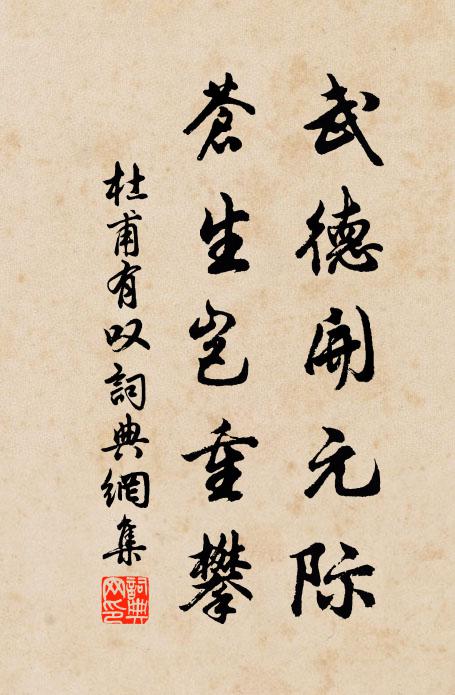 武德開元际
蒼生岂重攀
杜甫有叹詞典網集
詞典
网印